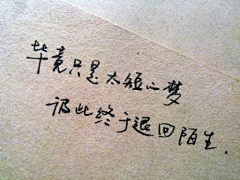 毕竟只是太短心梦
彼此终于退回陌生.